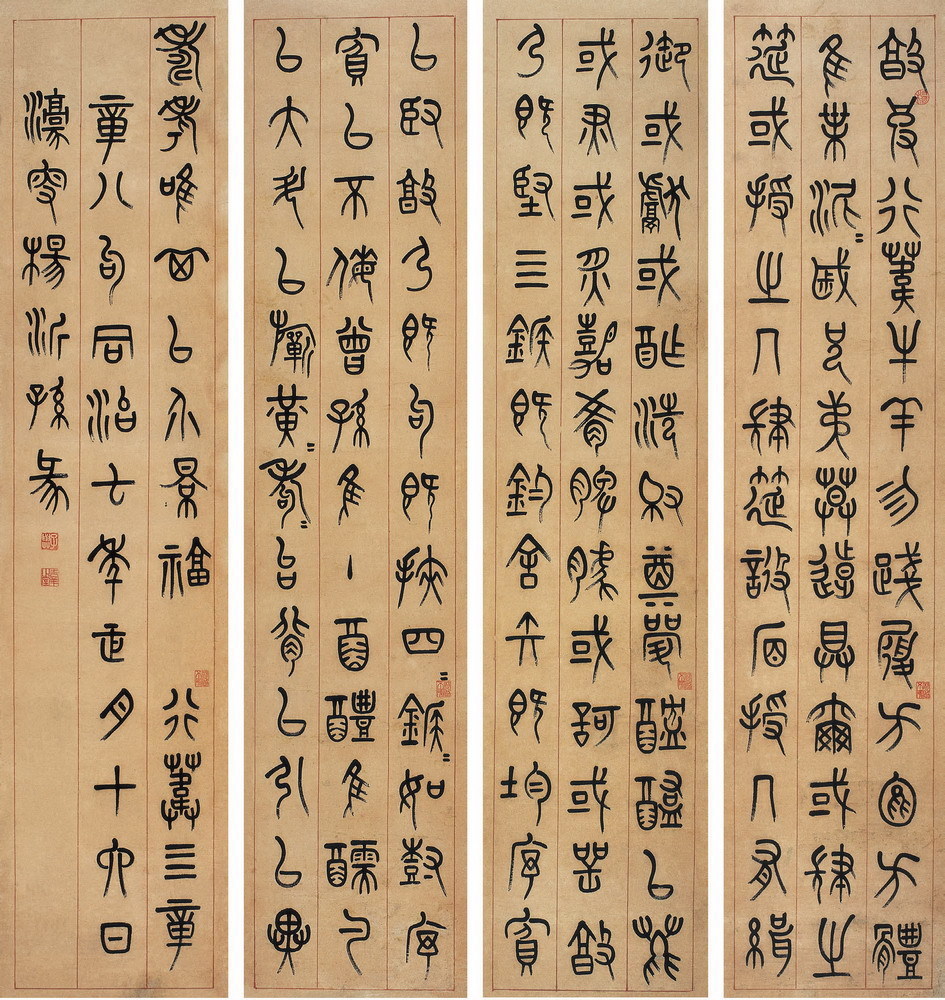 敦彼行葦牛羊勿踐履方苞方體
隹葉泥〻戚兄弟莫遠具爾或肆之
筵或授之几肆筵設席授几有緝
御或獻或酢洗爵奠斝醓醢以薦
或燔或炙嘉肴脾臄或訶或咢敦
弓既堅亖鍭既鈞舍矢既均序賓
以臤敦弓既句既挾四〻鍭〻如尌序
賓以不侮曾孫隹丶酒醴隹醹勺
以大斗以祈黃〻耇〻台背以引以翼
壽考唯祺以介景福 行葦三章
章八句同治七年正月十六日
濠叟楊沂孫篆